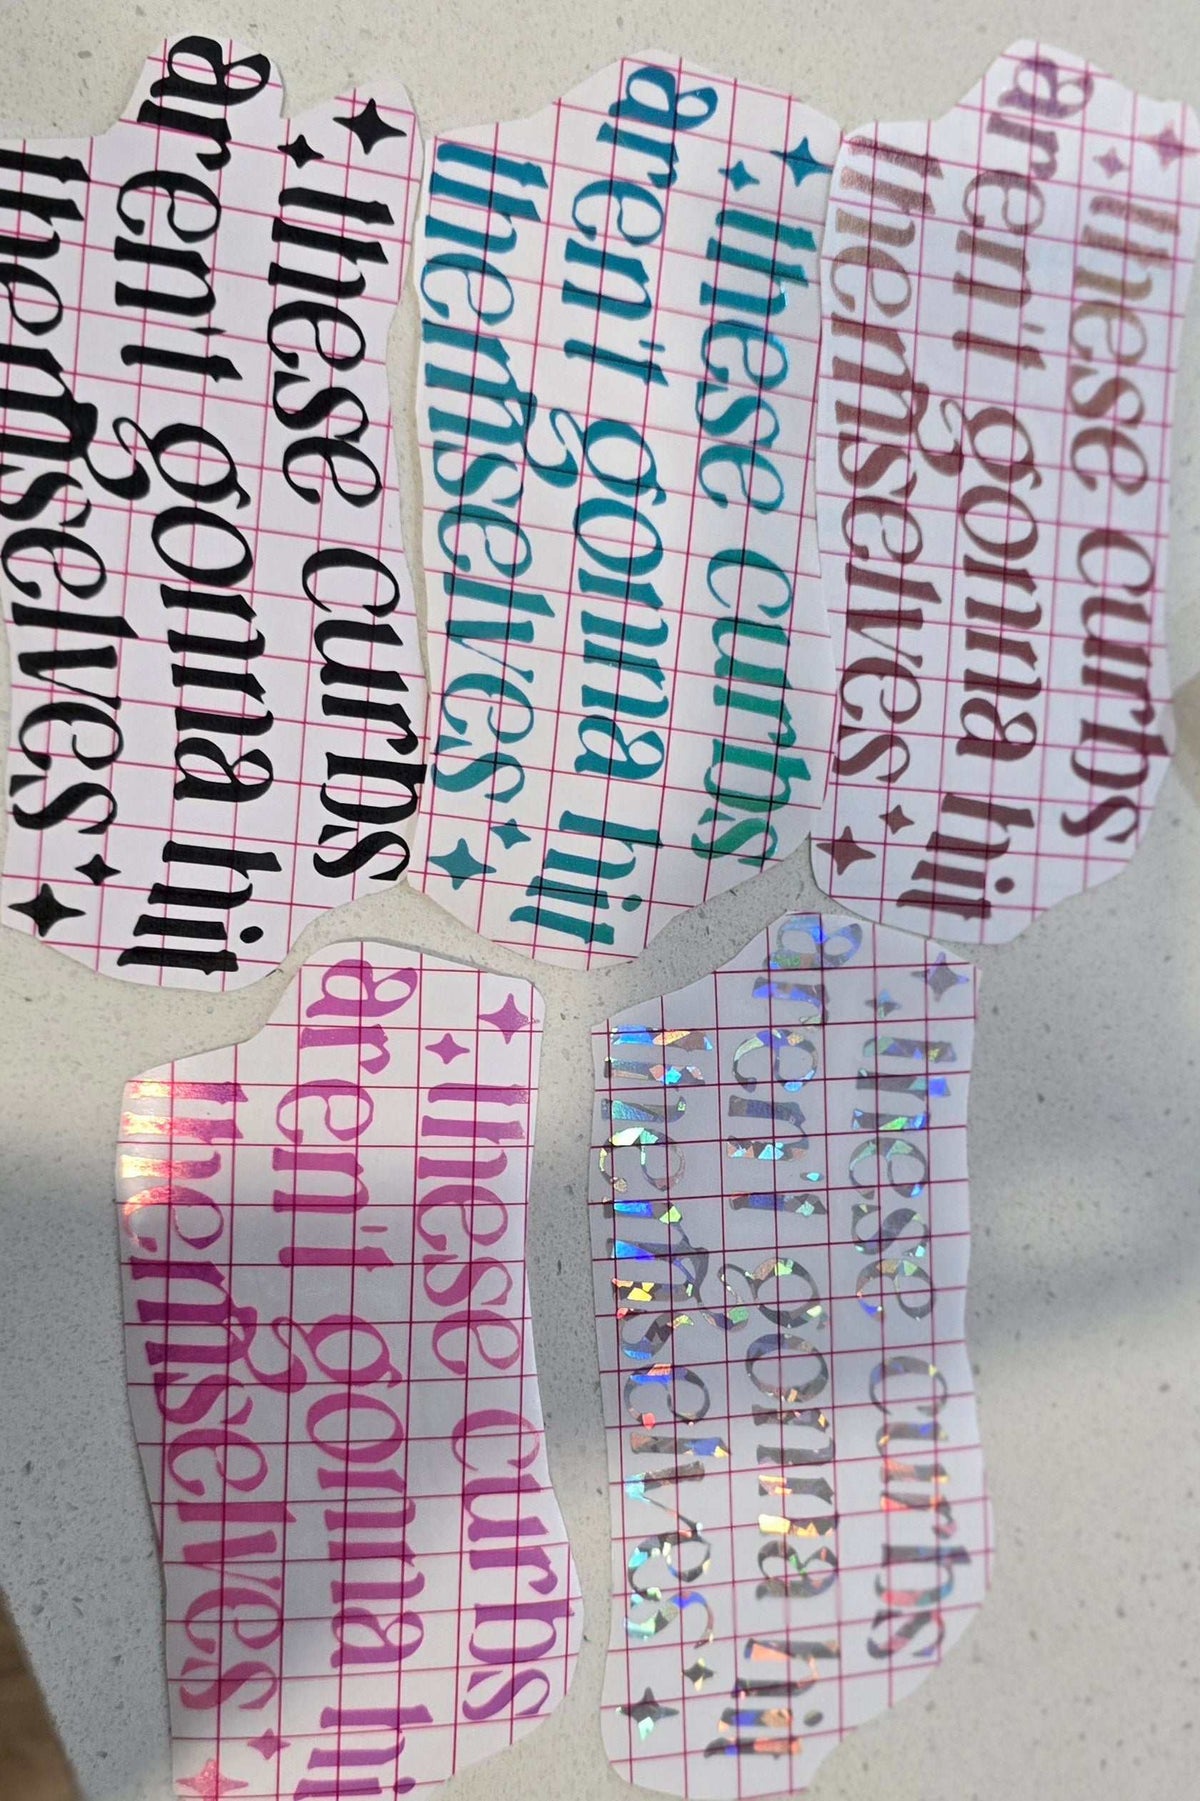 these curbs
aren't gonna hit
themselves
these curbs
aren't gonna hit
themselves
these curbs
aren't gonna hit
themselves
these curbs
aren't gonna hit
themselves
these curbs
aren't gonna hit
themselves